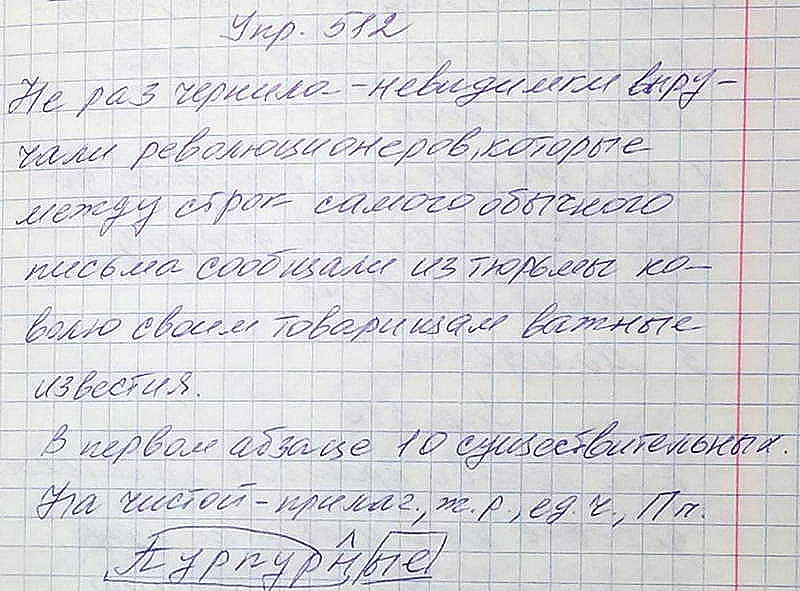 Упр. 512
Не раз чернила-невидимки выру-
чали революционеров, которые
между строк самого обычного
письма сообщали из тюрьмы на
волю своим товарищам важные
известия.
В первом абзаце 10 существительных.
На чистой - прилаг., ж.р., ед.ч., П.п.
Пурпурные